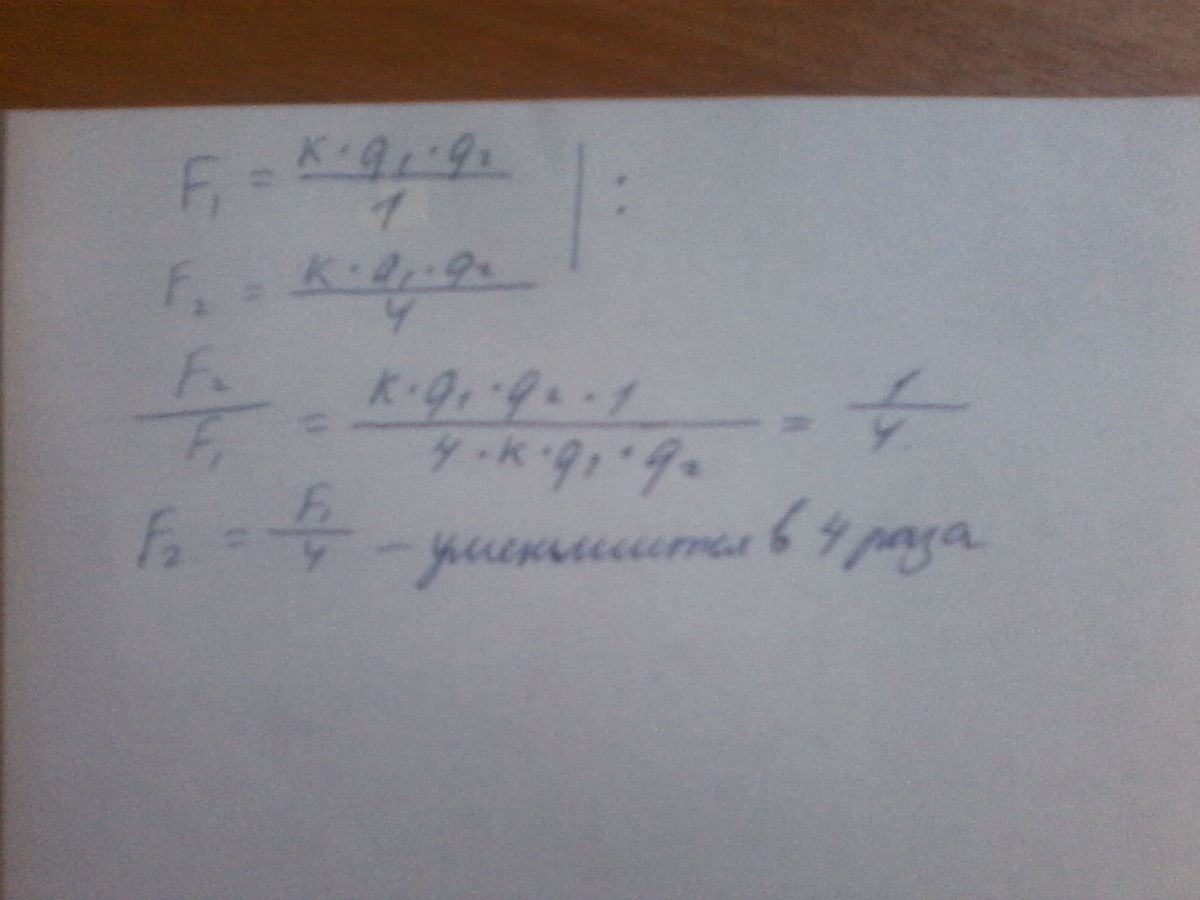 F₁ = (к · q₁ · q₂) / 1 | :
F₂ = (к · q₁ · q₂) / 4
F₂ / F₁ = (к · q₁ · q₂ · 1) / (4 · к · q₁ · q₂) = 1 / 4
F₂ = F₁ / 4 – уменьшится в 4 раза